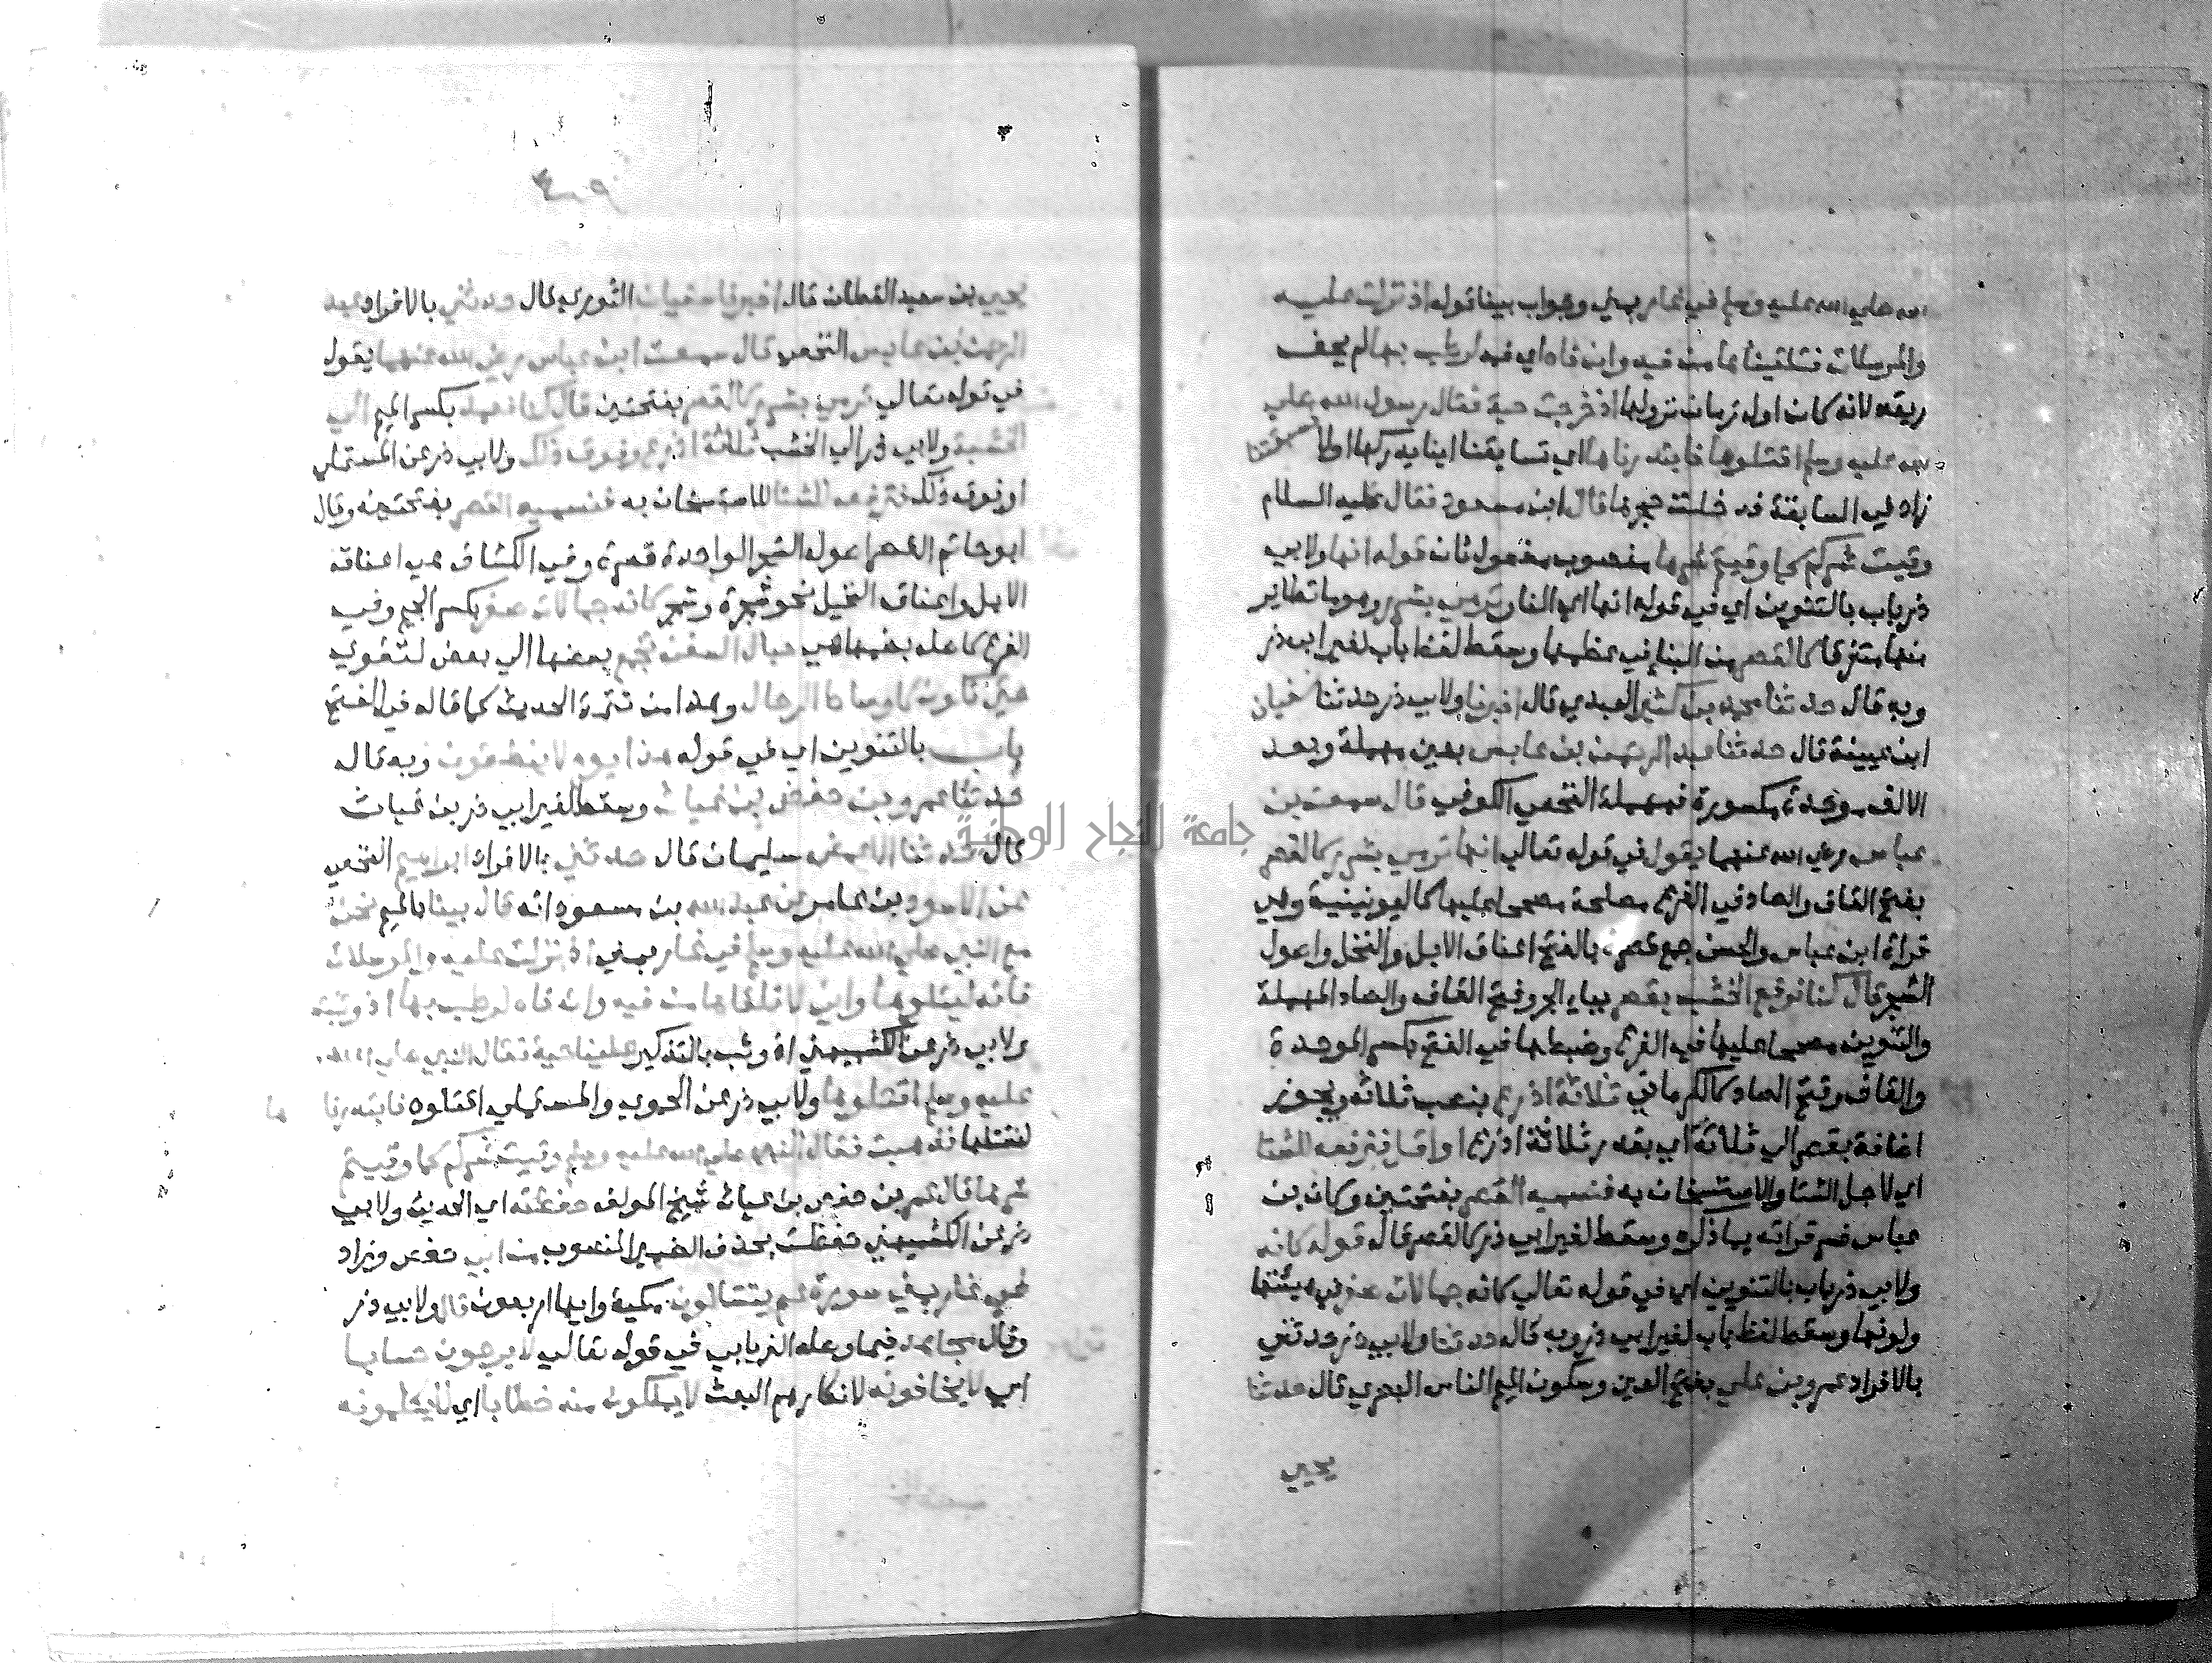 الله صلي الله عليه وسلم في غار بمني وجواب بينا قوله اذ نزلت عليه
والمرسلات فتلقيناها من فيه وان فاه اي فمه لرطب بها لم يجف
ريقه لانه كان اول زمان نزولها اذ خرجت حية فقال رسول الله صلي
الله عليه وسلم اقتلوها فابتدرناها اي تسابقنا اينا يدركها اولا فسبقتنا
زاد في السابقة فدخلت جحرها قال ابن مسعود فقال عليه السلام
وقيت شركم كما وقيتم شرها منصوب مفعول ثان قوله انها ولابي
ذر باب بالتنوين اي في قوله انها اي النار ترمي بشرر وهو ما تطاير
منها متفرقا كالقصر من البنا في عظمها وسقط لفظ باب لغير ابي ذر
وبه قال حدثنا محمد بن كثير العبدي قال اخبرنا ولابي ذر حدثنا سفيان
ابن عيينة قال حدثنا عبد الرحمن بن عابس بعين مهملة وبعد
الالف موحدة مكسورة فمهملة النخعي الكوفي قال سمعت بن
عباس رضي الله عنهما يقول في قوله تعالي انها ترمي بشرر كالقصر
بفتح القاف والصاد في الفرع مصلحة مصححا عليها كاليونينية وهي
قراة ابن عباس والحسن جمع قصرة بالفتح اعناق الابل والنخل واصول
الشجر قال كنا نرفع الخشب بقصر بباء الجر وفتح القاف والصاد المهملة
والتنوين مصححا عليها في الفرع وضبطها في الفتح بكسر الموحدة
والقاف وفتح الصاد كالكرماني ثلاثة اذرع بنصب ثلاثة ويجوز
اضافة بقصر الي ثلاثة اي بقدر ثلاثة اذرع او اقل فنرفعه للشتا
اي لاجل الشتا والاستسخان به فنسميه القصر بفتحتين وكان بن
عباس فسر قراته بما ذكره وسقط لغير ابي ذر كالقصر قال قوله كانه
ولابي ذر باب بالتنوين اي في قوله تعالي كانه جمالات صفر في هيئتها
ولونها وسقط لفظ باب لغير ابي ذر وبه قال حدثنا ولابي ذر حدثني
بالافراد عمرو بن علي بفتح العين وسكون الميم الفلاس البصري قال حدثنا
يحيي
يحيي بن سعيد القطان قال اخبرنا سفيان الثوري قال حدثني بالافراد عبد
الرحمن بن عابس النخعي قال سمعت ابن عباس رضي الله عنهما يقول
في قوله تعالي ترمي بشرر كالقصر بفتحتين قال كنا نعمد بكسر الميم الي
الخشبة ولابي ذر الي الخشب ثلاثة اذرع وفوق ذلك ولابي ذر عن المستملي
او فوق ذلك فنرفعه للشتا للاستسخان به فنسميه القصر بفتحتين وقال
ابو حاتم القصر اصول الشجر الواحدة قصرة وفي الكشاف هي اعناق
الابل واعناق النخيل نحو شجرة وشجر كانه جمالات صفر بكسر الجيم وفي
الفرع كاصله بضمها هي حبال السفن تجمع بعضها الي بعض لتقوي
حتي تكون كاوساط الرجال وهذا من تتمة الحديث كما قاله في الفتح
باب بالتنوين اي في قوله هذا يوم لا ينطقون وبه قال
حدثنا عمرو بن حفص بن غياث وسقط لغير ابي ذر بن غياث
قال حدثنا الاعمش سليمان قال حدثني بالافراد ابراهيم النخعي
عن الاسود بن عامر عن عبد الله بن مسعود انه قال بينا بالميم نحن
مع النبي صلي الله عليه وسلم في غار بمني اذ نزلت عليه والمرسلات
فانه ليتلوها واني لاتلقاها من فيه وان فاه لرطب بها اذ وثبت
ولابي ذر عن الكشميهني اذ وثب بالتذكير علينا حية فقال النبي صلي الله
عليه وسلم اقتلوها ولابي ذر عن الحموي والمستملي اقتلوه فابتدرناها
لنقتلها فذهبت فقال النبي صلي الله عليه وسلم وقيت شركم كما وقيتم
شرها قال عمر بن حفص بن غياث شيخ المولف حفظته اي الحديث ولابي
ذر عن الكشميهني حفظت بحذف الضمير المنصوب من ابي حفص وزاد
في غار بمني سورة عم يتسالون مكية وايها اربعون قال ولابي ذر
وقال مجاهد فيما وصله الفريابي في قوله تعالي لا يرجون حسابا
اي لا يخافونه لانكارهم البعث لا يملكون منه خطابا اي لا يكلمونه
جامعة النجاح الوطنية